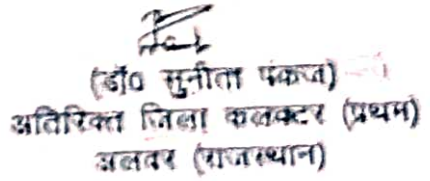 (डॉ० सुनीता पंकज)
अतिरिक्त जिला कलक्टर (प्रथम)
अलवर (राजस्थान)